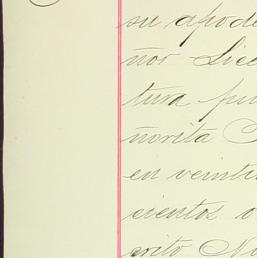 su apode
ños Lice
tura pu
ñorita
en veinti
cientos o
crito Nu